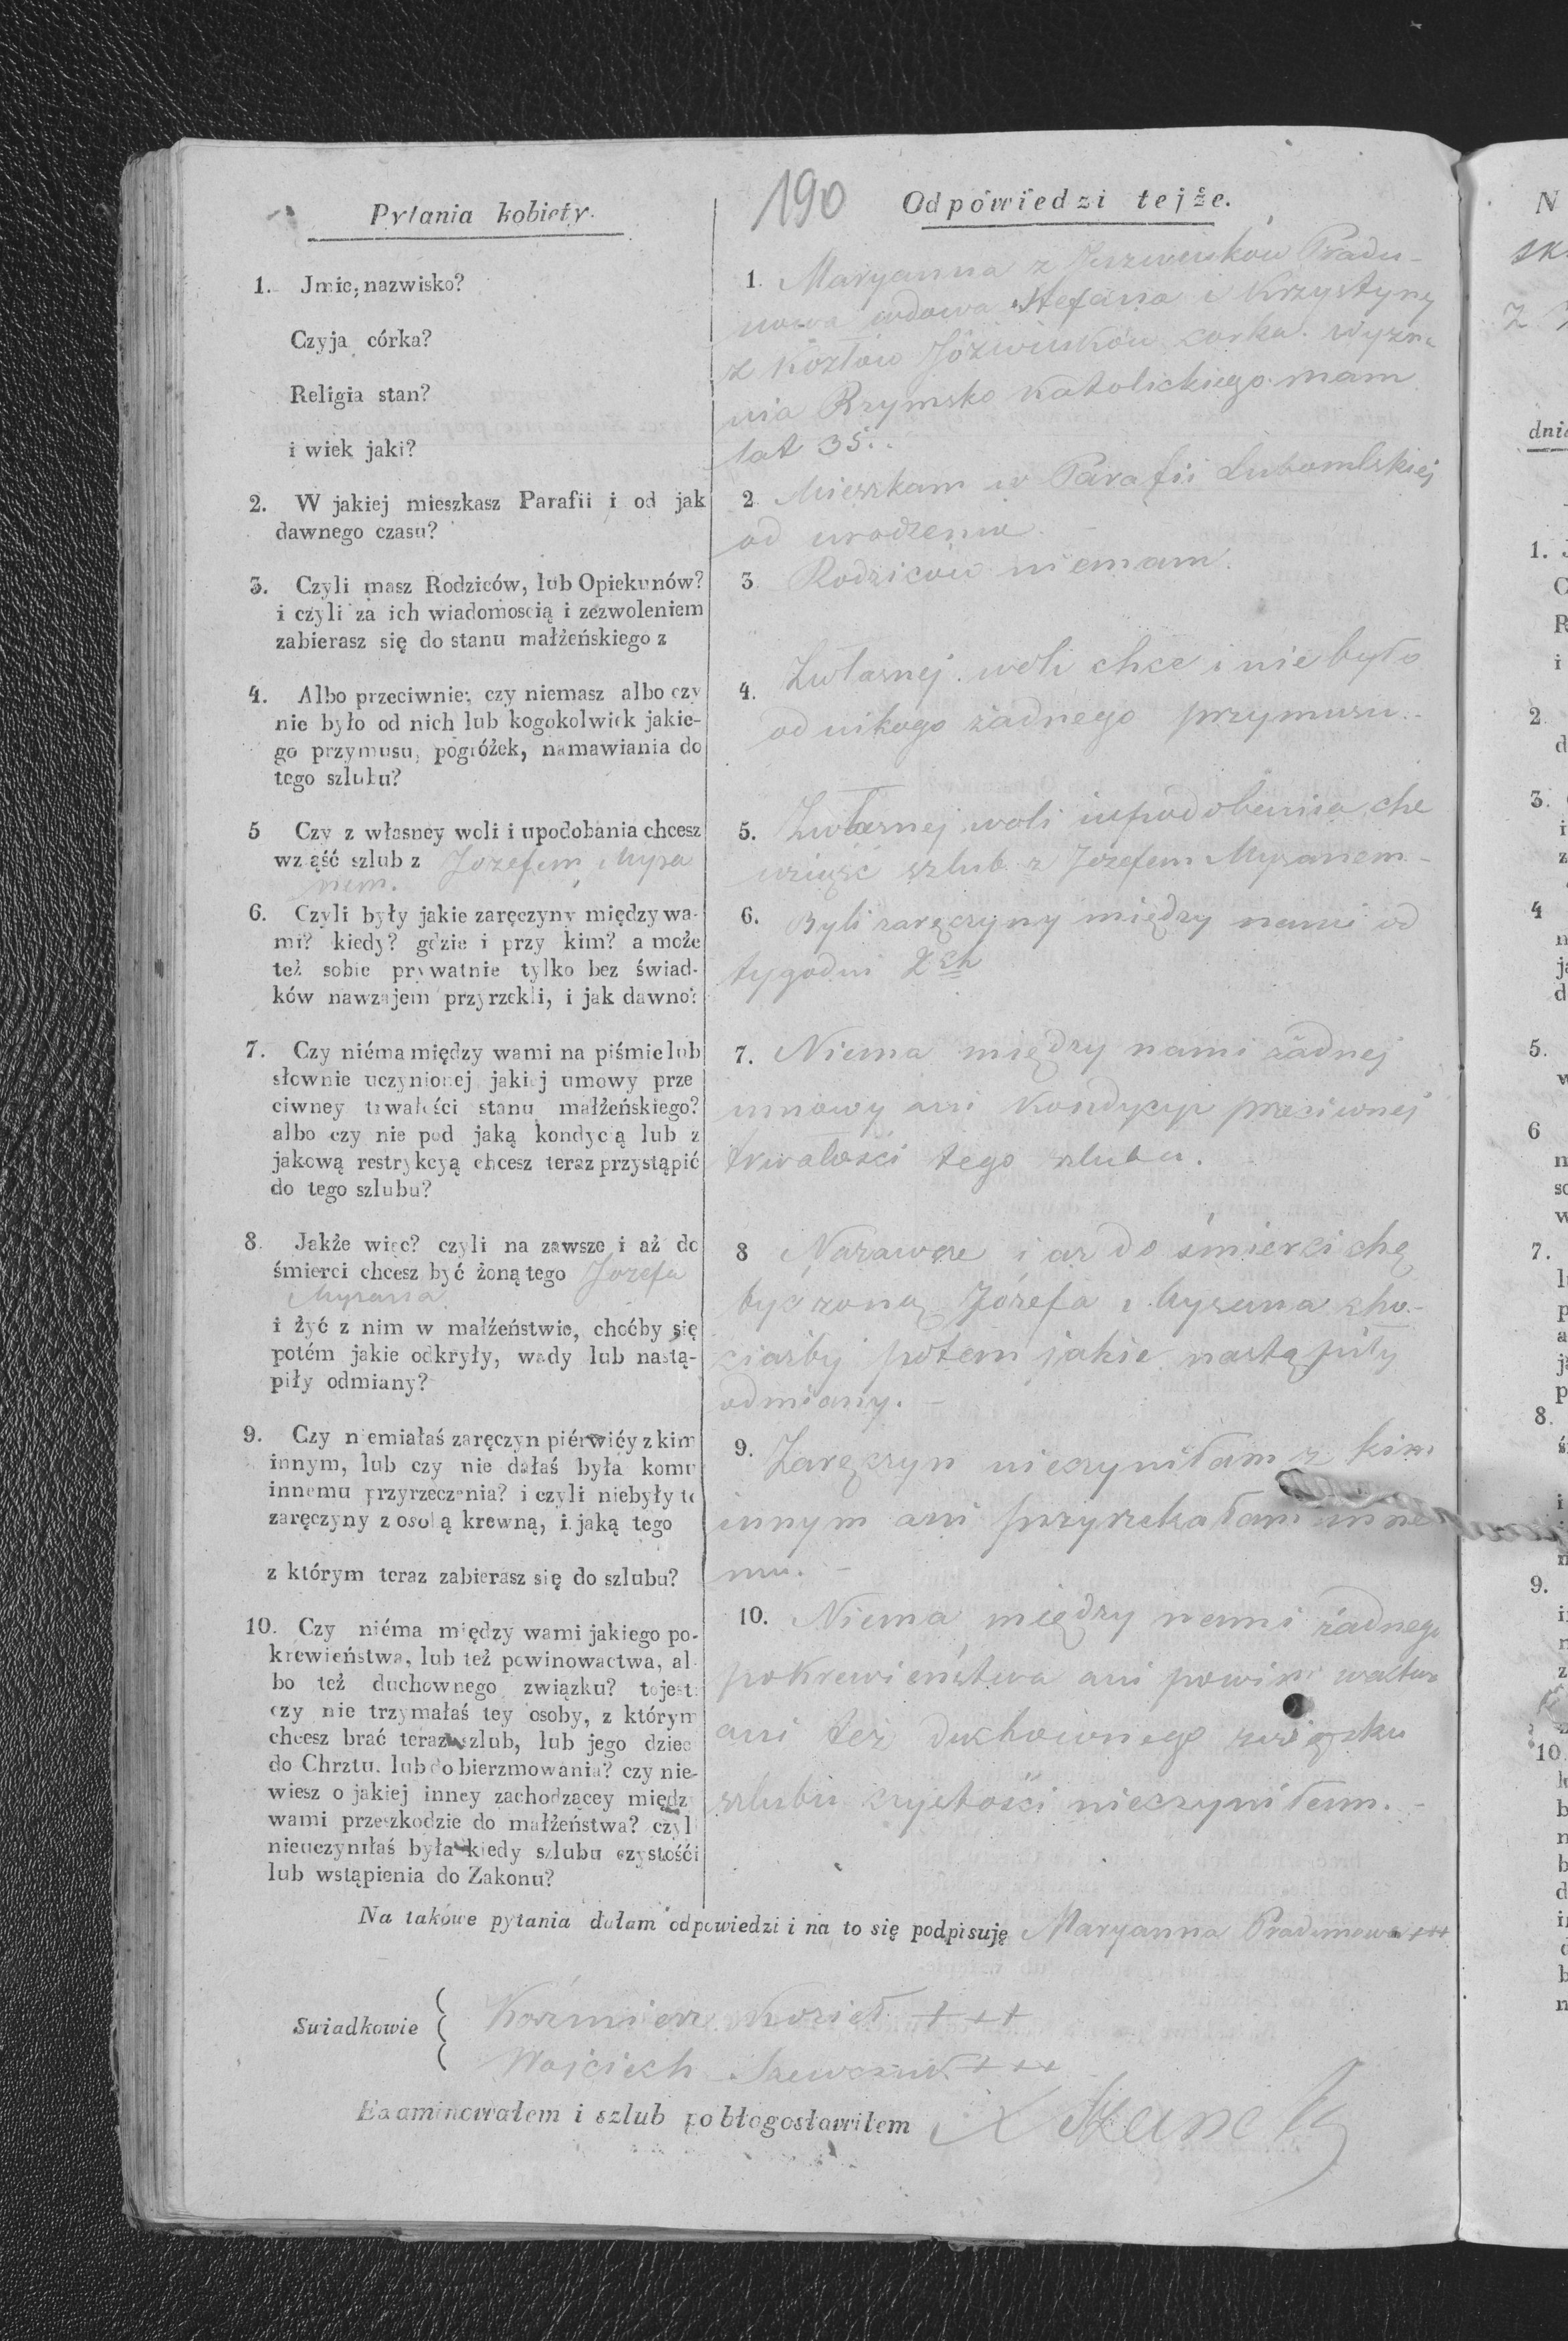 190
Pytania kobiety.
1. Jmie, nazwisko?
Czyja córka?
Religia stan?
i wiek jaki?
2. W jakiej mieszkasz Parafii i od jak
dawnego czasu?
3. Czyli masz Rodziców, lub Opiekunów?
i czyli za ich wiadomoscią i zezwoleniem
zabierasz się do stanu małżeńskiego z
4. Albo przeciwnie; czy niemasz albo czy
nie było od nich lub kogokolwiek jakie-
go przymusu, pogróżek, namawiania do
tego szlubu?
5 Czy z własney woli i upodobania chcesz
wziąść szlub z Jozefem Mysa
nem.
6. Czyli były jakie zaręczyny między wa-
mi? kiedy? gdzie i przy kim? a może
też sobie prywatnie tylko bez świad-
ków nawzajem przyrzekli, i jak dawno?
7. Czy niéma między wami na piśmie lub
słownie uczynionej jakiej umowy prze
ciwney trwałości stanu małżeńskiego?
albo czy nie pod jaką kondycią lub z
jakową restrykcyą chcesz teraz przystąpić
do tego szlubu?
8. Jakże więc? czyli na zawsze i aż do
śmierci chcesz być żoną tego Jozefa
Mysana
i żyć z nim w małżeństwie, choćby się
potém jakie odkryły, wady lub nastą-
piły odmiany?
9. Czy niemiałaś zaręczyn piérwiéy z kim
innym, lub czy nie dałaś była komu
innemu przyrzeczenia? i czyli niebyły te
zaręczyny z osobą krewną, i jaką tego
z którym teraz zabierasz się do szlubu?
10. Czy niéma między wami jakiego po-
krewieństwa, lub też powinowactwa, al-
bo też duchownego związku? tojest:
czy nie trzymałaś tey osoby, z którym
chcesz brać teraz szlub, lub jego dziec
do Chrztu, lub do bierzmowania? czy nie-
wiesz o jakiej inney zachodzącey międz
wami przeszkodzie do małżeństwa? czyl
nieuczyniłaś była kiedy szlubu czystośći
lub wstąpienia do Zakonu?
Odpówiedzi tejże.
1. Maryanna z Pradu-
nowa wdowa Stefana i Krzystyny
z Kozłów Józwiuków corka. Wyzna
nia Rzymsko Katolickiego mam
lat 35..
2 Mieszkam w Parafii Lubomlskiej
od urodzenia
3 Rodziców niemam.
4. Zwłasnej woli chce i nie było
od nikogo żadnego przymusu.-
5. Zwłasnej woli iupodobania che
wziąść szlub z Jozefem Mysanem-
6. Byli zaręczyny między nami od
tygodni 2ch
7. Niema między nami żadnej
umowy ani Kondycyi przeciwnej
trwałości tego szlubu.
8 Nazawsze i az do śmierci chę
być żoną Józefa Mysana cho-
ciazby potem jakie nastąpiły
odmiany.-
9. Zaręczyn nieczyniłam z kim
innym ani przyrzekałam inne
mu.-
10. Niema między nami żadnego
pokrewieństwa ani powino wactwa
ani też duchownego związku
szlubu czystości nieczyniłam.-
Na takówe pytania dałam odpowiedzi i na to się podpisuję Maryanna Pradunowa +++
Swiadkowie { Kazmierz Kozieł +++
Wojciech Szewczuk +++
Examinowałem i szlub pobłogosławiłem X